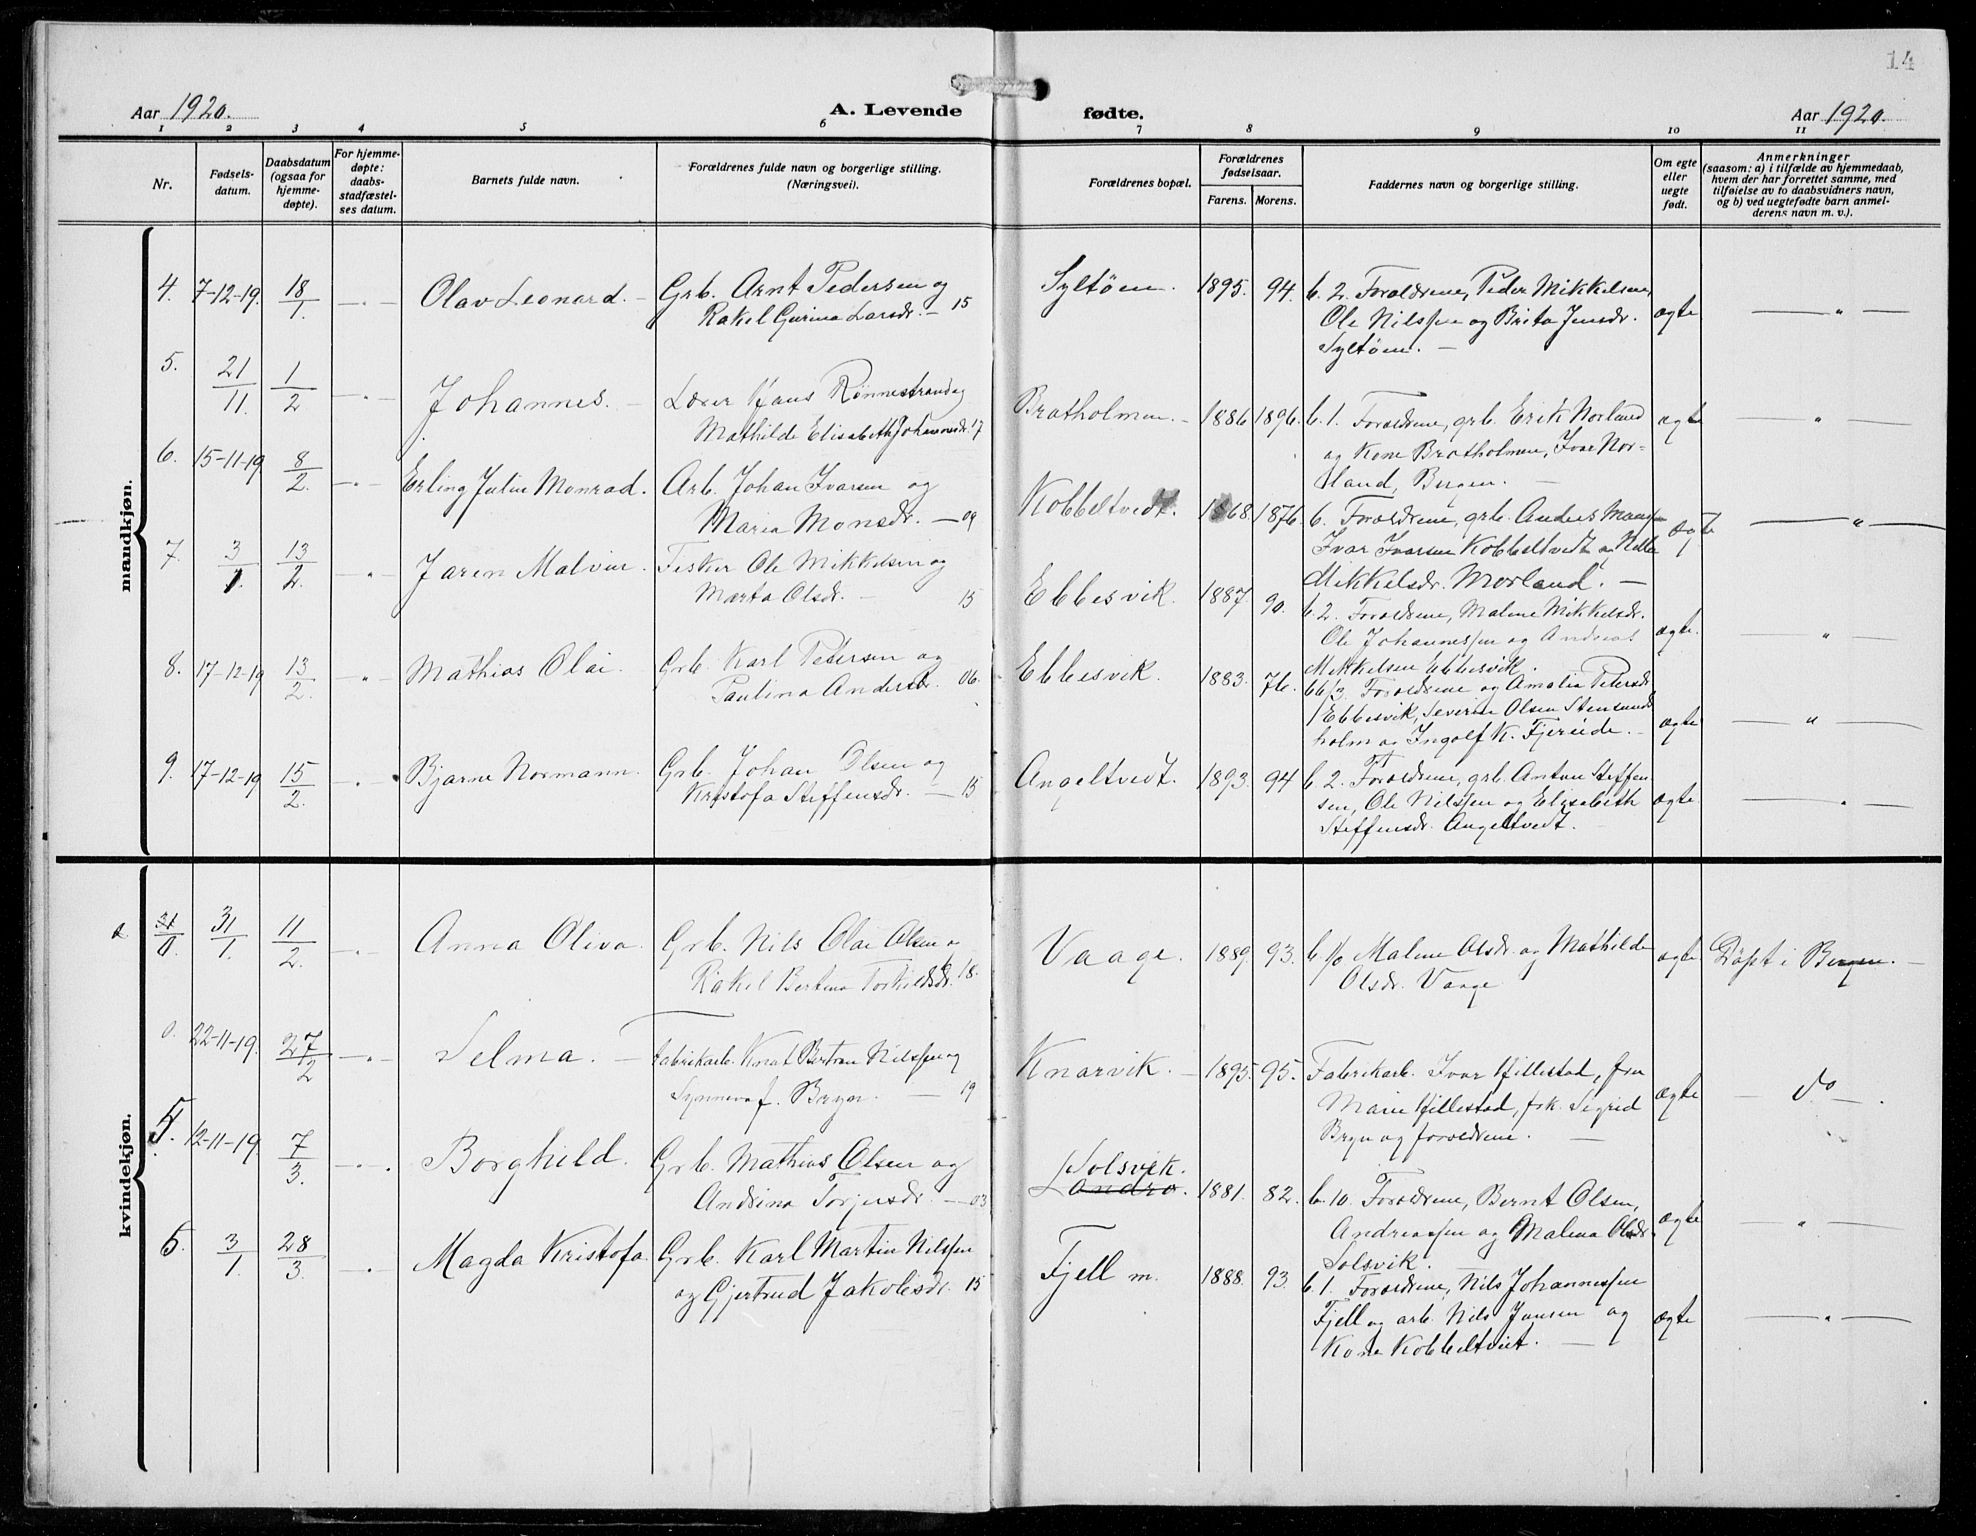 14
Aar 1920.
A. Levende fødte.
Aar 1920.
1 2 3 4 5 6 7 8 9 10 11
Nr.
Fødsels-
datum.
Daabsdatum
(ogsaa for
hjemme-
døpte).
For hjemme-
døpte:
daabs-
stadfæstel-
ses datum.
Barnets fulde navn.
Forældrenes fulde navn og borgerlige stilling.
(Næringsvei).
Forældrenes bopæl.
Forældrenes
fødselsaar.
Farens. Morens.
Faddernes navn og borgerlige stilling.
Om egte
eller
uegte
født.
Anmerkninger
(saasom: a) i tilfælde av hjemmedaab,
hvem der har forrettet samme, med
tilføielse av to daabsvidners navn,
og b) ved uegtefødte barn anmel-
derens navn m. v.).
mandkjøn.
4. 7-12-19. 18/1 — " — Olav Leonard. — Grb. Arnt Pedersen og Syltøen. 1895. 94. b. 2. Forældrene, Peder Mikkelsen,
Rakel Gurina Larsdr. — 15 Ole Nilssen og Brita Jensdr. ægte — " —
Syltøen. —
5. 21/11. 1/2 — " — Johannes. — Hans Rønnestrand og Bratholmen. — 1886 1896. b. 1. Forældrene, grb. Erik Norland ægte "
Mathilde Elisabeth Johannesdr. 17 og Kone Bratholmen, Ivar Nor-
land, Bergen. —
6. 15-11-19 8/2. — " — Erling Julin Monrad. Arb. Johan Ivarsen og Kobbeltvedt. 1868. 1876. b. Forældrene, grb. Anders Mansen ægte — " —
Maria Monsdr. — 09 Ivar Ivarsen Kobbeltvedt og
Mikkelsdr. Morland. —
7. 3/1. 13/2. — " — Jaren Malvin. Fisker Ole Mikkelsen og Ebbesvik. 1887. 90. b. 2. Forældrene, Malene Mikkelsdr.
Marta Olsdr. — 15 Ole Johannessen og Andreas ægte. — " —
Mikkelsen Ebbesvik.
8. 17-12-19 13/2. — " — Mathias Olai. Grb. Karl Petersen og Ebbesvik. 1883. 76. Forældrene og Amalia Petersdr.
Paulina Andersdr. 06. Ebbesvik, Severin Olsen Stensund-
holm og Ingolf K. — ægte — " —
9. 17-12-19 15/2. — " — Bjarne Normann. Grb. Johan Olsen og Angeltvedt. 1893. 94 b. 2. Forældrene, grb. Anton Steffen-
Kristofa Steffensdr. — 15 sen, Ole Nilssen og Elisabeth ægte — " —
Steffensdr. Angeltvedt. —
kvindekjøn.
31/1. 11/2. — " — Anna Oliva. Grb. Nils Olai Olsen og Vaage. 1889. 93. Malene Olsdr. og Mathilde ægte Døpt i Bergen. —
Rakel Bertina Torkildsdr. 18. Olsdr. Vaage
22-11-19. 27/2 — " — Selma. — Fabrikarb. Knut Bertran Nilssen og Knarvik. — 1895. 95. Fabrikarb. Ivar Hillestad, fru
Synneva f. — 19 Marie Hillestad, frk. Sigrid ægte — do —.
Bryn og forældrene. —
5. 12-11-19. 7/3. — " — Borghild. Grb. Mathias Olsen og Solsvik.
Landro. 1881. 82. b. 10. Forældrene, Bernt Olsen,
Andrina Torjusdr. — 03 Andreassen og Malena Olsdr. ægte — " —
Solsvik.
6. 3/1. 28/3. — " — Magda Kristofa. Grb. Karl Martin Nilssen Fjell m. 1888. 93. b. 1. Forældrene, Nils Johannessen
og Gjertrud Jakobsdr. 15 Fjell og arb. Nils Jansen og ægte — " —
Kone Kobbeltveit. —